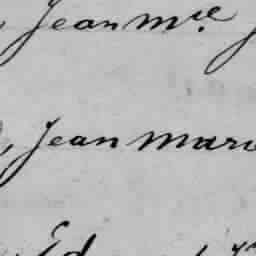 Jean m.re
, Jean mari
Ed